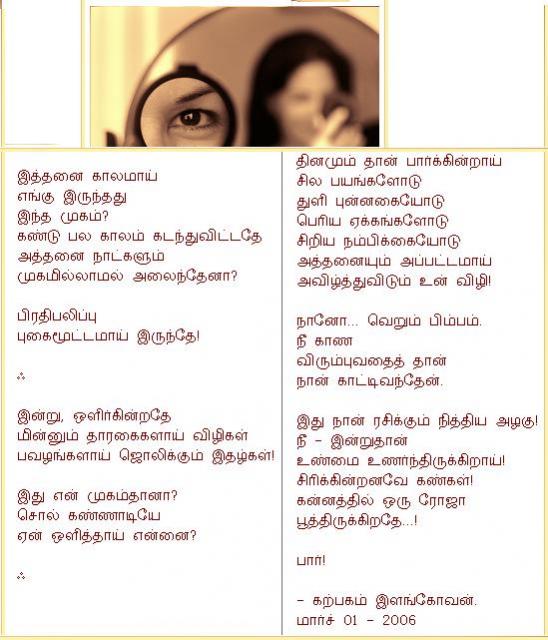 இத்தனை காலமாய்
எங்கு இருந்தது
இந்த முகம்?
கண்டு பல காலம் கடந்துவிட்டதே
அத்தனை நாட்களும்
முகமில்லாமல் அலைந்தேனா?
பிரதிபலிப்பு
புகைமூட்டமாய் இருந்தே!
ஃ
இன்று, ஒளிர்கின்றதே
மின்னும் தாரகைகளாய் விழிகள்
பவழங்களாய் ஜொலிக்கும் இதழ்கள்!
இது என் முகம்தானா?
சொல் கண்ணாடியே
ஏன் ஒளித்தாய் என்னை?
ஃ
தினமும் தான் பார்க்கின்றாய்
சில பயங்களோடு
துளி புன்னகையோடு
பெரிய ஏக்கங்களோடு
சிறிய நம்பிக்கையோடு
அத்தனையும் அப்பட்டமாய்
அவிழ்த்துவிடும் உன் விழி!
நானோ... வெறும் பிம்பம்.
நீ காண
விரும்புவதைத் தான்
நான் காட்டிவந்தேன்.
இது நான் ரசிக்கும் நித்திய அழகு!
நீ - இன்றுதான்
உண்மை உணர்ந்திருக்கிறாய்!
சிரிக்கின்றனவே கண்கள்!
கன்னத்தில் ஒரு ரோஜா
பூத்திருக்கிறதே...!
பார்!
- கற்பகம் இளங்கோவன்.
மார்ச் 01 - 2006